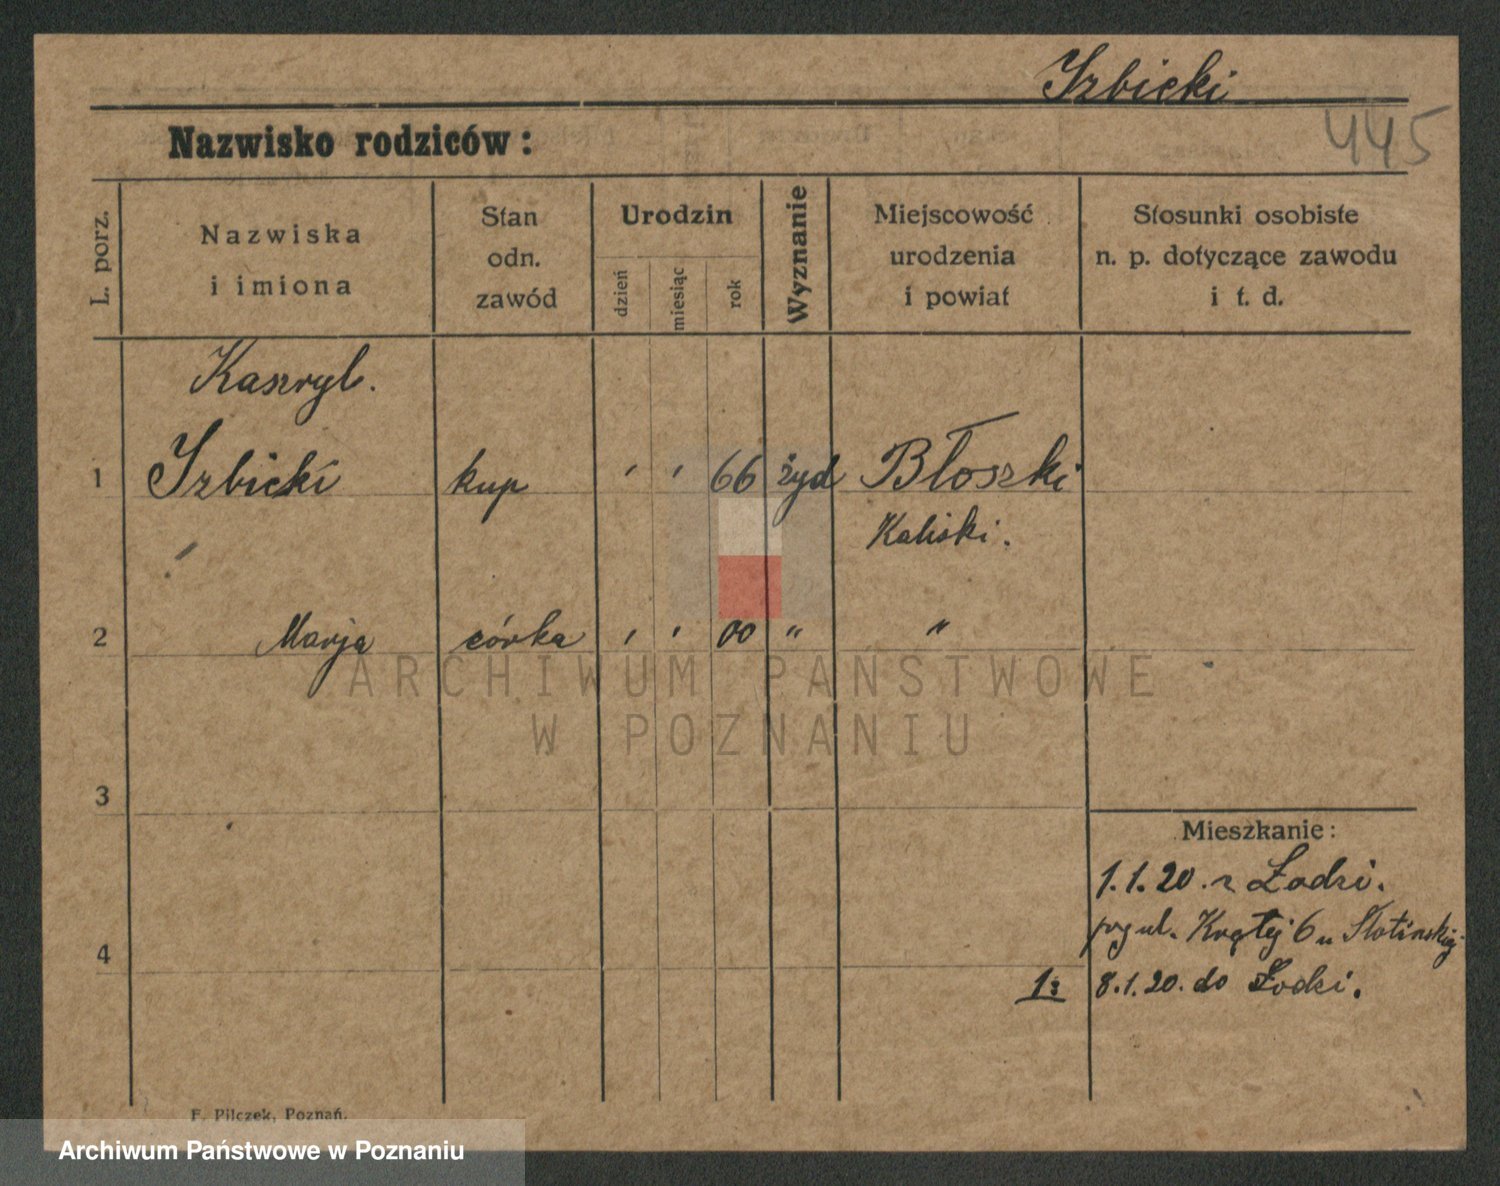 Izbicki
445
Nazwisko rodziców:
L. porz.
Nazwiska
i imiona
Stan
odn.
zawód
Urodzin
dzień
miesiąc
rok
Wyznanie
Miejscowość
urodzenia
i powiat
Stosunki osobiste
n. p. dotyczące zawodu
i t. d.
Kaszryl.
1 Izbicki kup ' ' 66 żyd Błoszki
Kaliski.
2 Marja córka ' ' 00 " "
3
Mieszkanie:
1.1.20. z Łodzi.
przy ul. Krętej 6 u
4
1: 8.1.20. do Łodzi.
F. Pilczek, Poznań.
ARCHIWUM PAŃSTWOWE
W POZNANIU
Archiwum Państwowe w Poznaniu